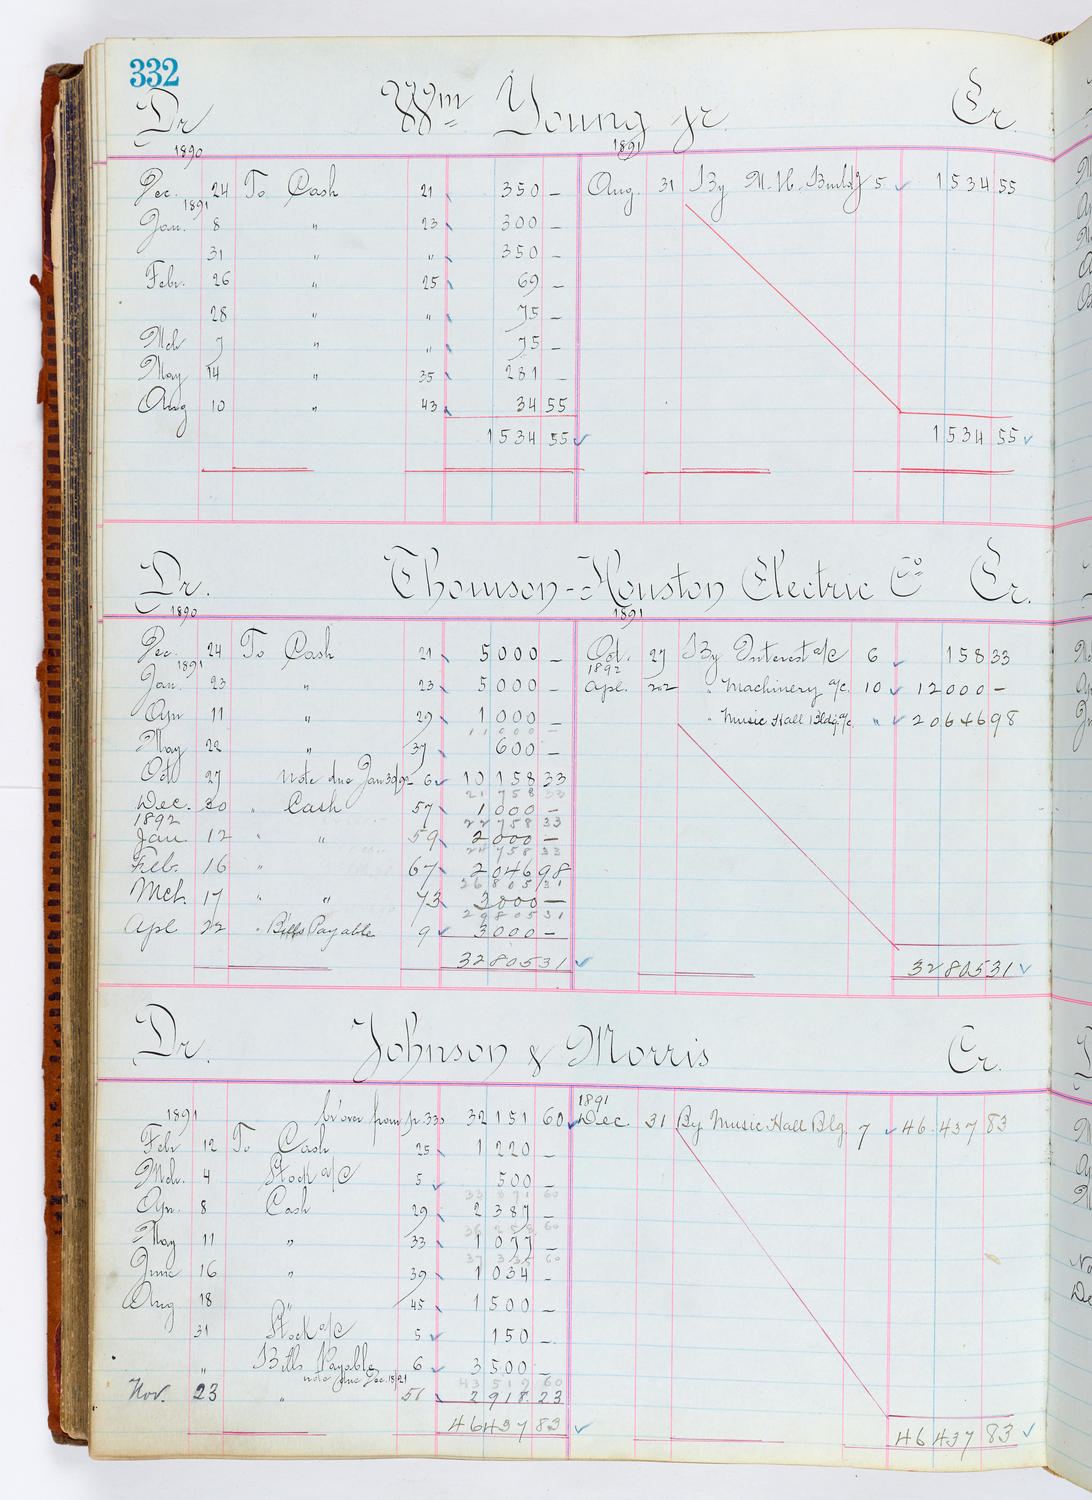 332
Dr Wm Young Jr. Cr.
1890 1891
Dec. 24 To Cash 21 350 – Aug. 31 By M. H. Buildg 5 1534 55
1891
Jan. 8 " 23 300 –
31 " " 350 –
Febr. 26 " 25 69 –
28 " " 75 –
Mch 7 " " 75 –
May 14 " 35 281 –
Aug 10 " 43 34 55
1534 55 1534 55
Dr. Thomson-Houston Electric Co Cr.
1890 1891
Dec. 24 To Cash 21 5000 – Oct. 27 By Interest a/c 6 158 33
1891 1892
Jan. 23 " 23 5000 – Apl. 22 " Machinery a/c. 10 12000 –
Apr 11 " 29 1000 – " Music Hall Bldg. a/c " 20646 98
11 000 –
May 22 " 37 600 –
Oct 27 note due Jan 30/92 6 10158 33
21 758 33
Dec. 30 " Cash 57 1000 –
1892
22 758 33
Jan. 12 " " 59 2000 –
24 758 33
Feb. 16 " 67 2046 98
26 805 31
Mch. 17 " " 73 3000 –
29805 31
Apl 22 " Bills Payable 9 3000 –
32805 31 32805 31
Dr. Johnson & Morris Cr.
1891 br'over from p. 330 32151 60 1891
Dec. 31 By Music Hall Blg. 7 46.437 83
Febr 12 To Cash 25 1220 –
Mch. 4 Stock a/c 5 500 –
33 871 60
Apr. 8 Cash 29 2387 –
36 258 60
May 11 " 33 1077 –
37 335 60
June 16 " 39 1034 –
Aug 18 " 45 1500 –
31 Stock a/c 5 150 –
" Bills Payable 6 3500 –
note due Dec. 18/91
43 519 60
Nov. 23 " 51 2918 23
46437 83 46437 83